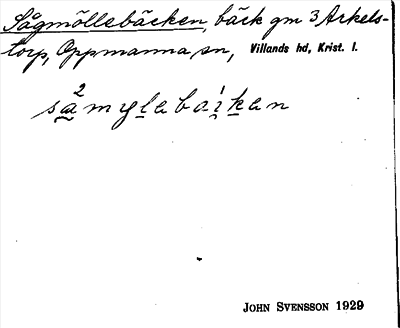 Sågmöllebäcken, bäck gm 3 Arkels-
torp, Oppmanna sn, Villands hd, Krist. l.
så²mylaba¹ikan
JOHN SVENSSON 1929